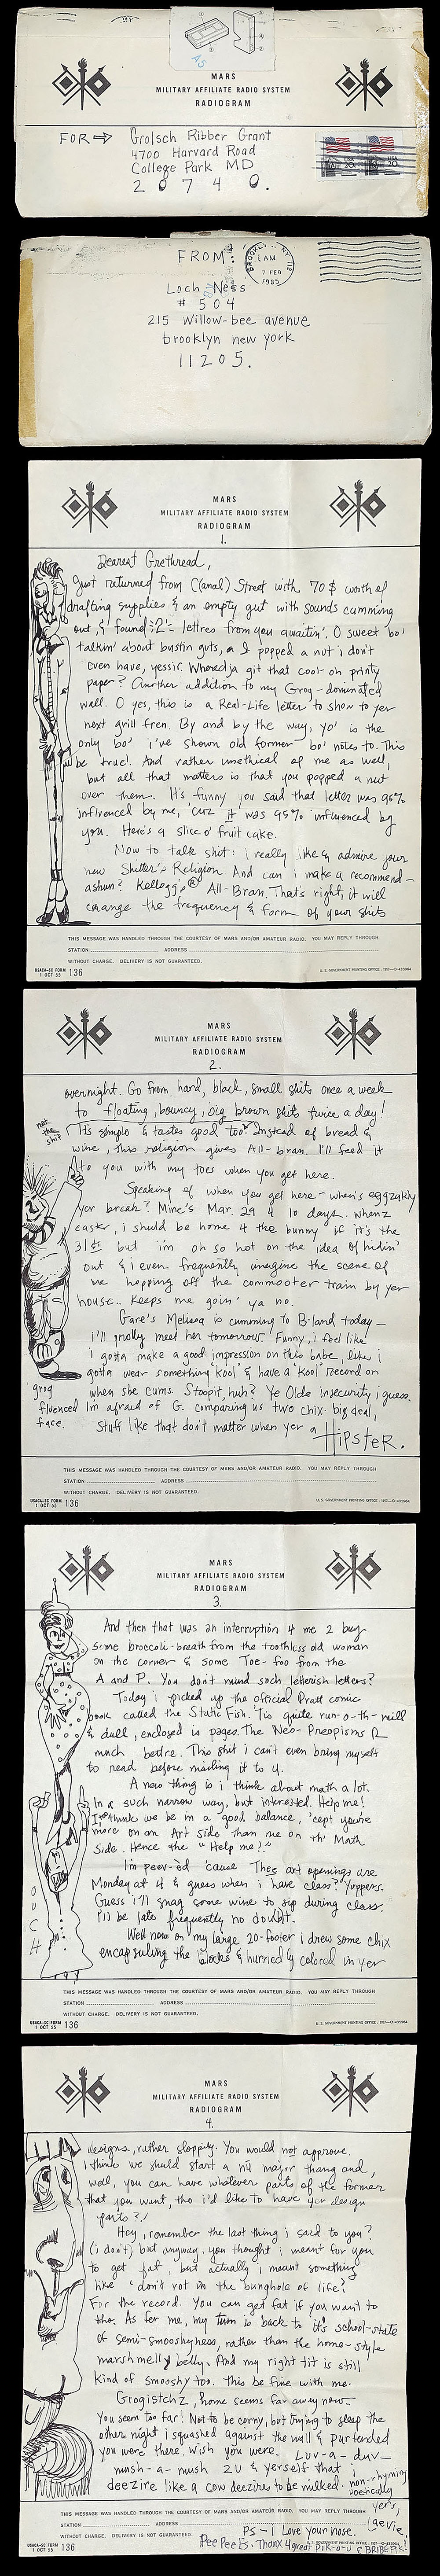 A5
MARS
MILITARY AFFILIATE RADIO SYSTEM
RADIOGRAM
FOR ⇒ Grolsch Ribber Grant
4700 Harvard Road
College Park MD
20740.
FROM:
BROOKLYN, NY 112
1AM
7 FEB
1985
Loch Ness
#504
215 Willow-bee avenue
brooklyn new york
11205.
MARS
MILITARY AFFILIATE RADIO SYSTEM
RADIOGRAM
1.
Dearest Grethread,
Just returned from C(anal) Street with 70$ worth of
drafting supplies & an empty gut with sounds cumming
out, & found :2: lettres from you awaitin'. O sweet bo'
talkin' about bustin guts, I popped a nut i don't
even have, yessir. Wheredja git that cool oh printy
paper? Another addition to my Grog-dominated
wall. O yes, this is a Real-Life letter to show to yer
next grill fren. By and by the way, yo' is the
only bo' i've shown old former bo' notes to. This
be true! And rather unethical of me as well,
but all that matters is that you popped a nut
over them. It's funny you said that letter was 95%
influenced by me, 'cuz it was 95% influenced by
you. Here's a slice o' fruit cake.
Now to talk shit: i really like & admire your
new Shitter's Religion And can i make a recommend-
ashun? Kellogg's ® All-Bran. That's right, it will
change the frequency & form of your shits
THIS MESSAGE WAS HANDLED THROUGH THE COURTESY OF MARS AND/OR AMATEUR RADIO. YOU MAY REPLY THROUGH
STATION ADDRESS
WITHOUT CHARGE. DELIVERY IS NOT GUARANTEED.
USACA-SC FORM 136
1 OCT 55
MARS
MILITARY AFFILIATE RADIO SYSTEM
RADIOGRAM
2.
overnight. Go from hard, black, small shits once a week
to floating, bouncy, big brown shits twice a day!
not the shit
It's simple & tastes good too. Instead of bread &
wine, this religion gives All-bran. I'll feed it
to you with my toes when you get here.
Speaking of when you get here - when's eggzakly
yor break? Mine's Mar. 29 4 10 days. Whenz
easter, i shuld be home 4 the bunny if it's the
31st but i'm oh so hot on the idea of hidin'
out & i even frequently imagine the scene of
me hopping off the commooter train by yer
house.. Keeps me goin' ya no.
Gare's Melissa is cumming to B-land today -
I'll prolly meet her tomorrow. Funny, i feel like
i gotta make a good impression on this babe, like i
gotta wear something 'kool' & have a 'kool' record on
when she cums. Stoopit, huh? Ye Olde insecurity i guess.
I'm afraid of G. comparing us two chix. big deal,
Stuff like that don't matter when yer a HIPSTER.
grog
fluenced
face.
THIS MESSAGE WAS HANDLED THROUGH THE COURTESY OF MARS AND/OR AMATEUR RADIO. YOU MAY REPLY THROUGH
STATION ADDRESS
WITHOUT CHARGE. DELIVERY IS NOT GUARANTEED.
USACA-SC FORM 136
1 OCT 55
MARS
MILITARY AFFILIATE RADIO SYSTEM
RADIOGRAM
3.
And then that was an interruption 4 me 2 buy
some broccoli-breath from the toothless old woman
on the corner & some Toe-foo from the
A and P. You don't mind such letterish letters?
Today i picked up the official Pratt comic
book called the Static Fish. 'Tis quite run-o-th-mill
& dull, enclosed is pages. The Neo-Preopisms R
much bedre. This shit i can't even bring myself
to read before mailing it to U.
A new thing is i think about math a lot.
In a such narrow way, but interested. Help me!
I think we be in a good balance, 'cept you're
more on an Art side than me on th' Math
Side. Hence the "Help me!"
I'm peev-èd 'cause Thee art openings are
Monday at 4 & guess when i have class? Yuppers.
Guess i'll snag some wine to sip during class.
I'll be late frequently no doubt.
Well now on my large 20-footer i drew some chix
encapsuling the blocks & hurriedly colored in yer
OUCH
THIS MESSAGE WAS HANDLED THROUGH THE COURTESY OF MARS AND/OR AMATEUR RADIO. YOU MAY REPLY THROUGH
STATION ADDRESS
WITHOUT CHARGE. DELIVERY IS NOT GUARANTEED.
USACA-SC FORM 136
1 OCT 55
MARS
MILITARY AFFILIATE RADIO SYSTEM
RADIOGRAM
4.
designs, rather sloppily. You would not approve,
i think we shuld start a nü major thang and,
well, you can have whatever parts of the former
that you want, tho i'd like to have yer design
parts?!
Hey, remember the last thing i said to you?
(i don't) but anyway, you thought i meant for you
to get fat, but actually i meant something
like 'don't rot in the bunghole of life'?
For the record. You can get fat if you want to
tho. As fer me, my tum is back to it's school-state
of semi-smooshyness, rather than the home-style
marshmelly belly. And my right tit is still
kind of smooshy too. This be fine with me.
Grogistchz, home seems far away now-
You seem too far! Not to be corny, but trying to sleep the
other night i squashed against the wall & purtended
you were there. Wish you were. Luv-a-duv-
mush-a-mush 2U & yerself that i
deezire like a cow deezires to be milked. non-rhyming
poetically
yers,
PS - i Love your nose.
Pee Pee Es. Thanx 4 great PiK-o-U & BRIBE PiK!
THIS MESSAGE WAS HANDLED THROUGH THE COURTESY OF MARS AND/OR AMATEUR RADIO. YOU MAY REPLY THROUGH
STATION ADDRESS
WITHOUT CHARGE. DELIVERY IS NOT GUARANTEED.
USACA-SC FORM 136
1 OCT 55